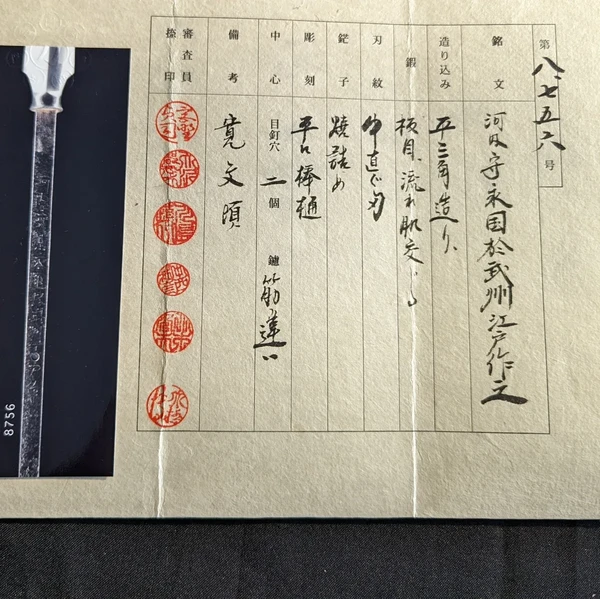 第八、七五六号
銘文 河内守永国於武州江戸作之
造り込み 平三角造り、
鍛 板目、流れ肌交じる
刃紋 中直ぐ刃
鋩子 焼詰め
彫刻 平に棒樋
中心 目釘穴 二 個 鑢 筋違い
備考 寛文頃
審査員
捺印
8756